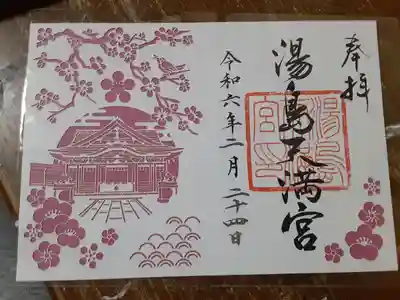 奉拝
湯島天満宮
湯島
宮
令和六年二月二十四日